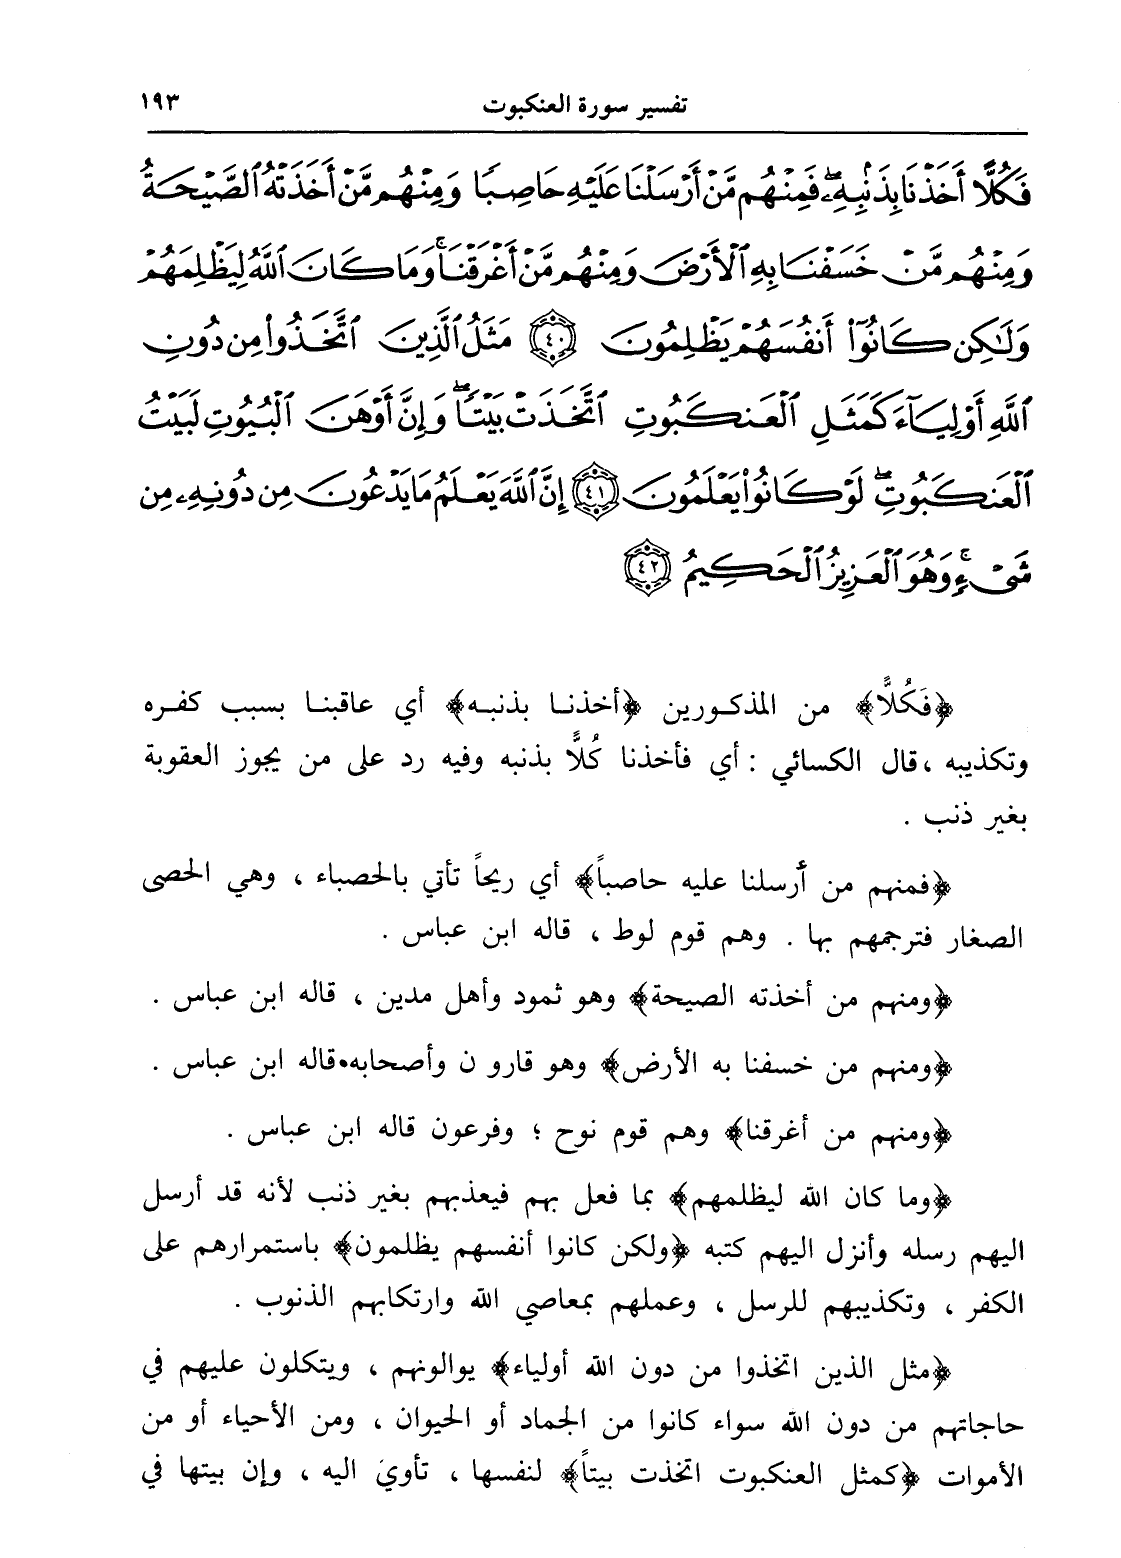 تفسير سورة العنكبوت ١٩٣
فَكُلًّا أَخَذْنَا بِذَنۢبِهِۦ ۖ فَمِنْهُم مَّنْ أَرْسَلْنَا عَلَيْهِ حَاصِبًا وَمِنْهُم مَّنْ أَخَذَتْهُ ٱلصَّيْحَةُ
وَمِنْهُم مَّنْ خَسَفْنَا بِهِ ٱلْأَرْضَ وَمِنْهُم مَّنْ أَغْرَقْنَا ۚ وَمَا كَانَ ٱللَّهُ لِيَظْلِمَهُمْ
وَلَٰكِن كَانُوٓا۟ أَنفُسَهُمْ يَظْلِمُونَ ٤٠ مَثَلُ ٱلَّذِينَ ٱتَّخَذُوا۟ مِن دُونِ
ٱللَّهِ أَوْلِيَآءَ كَمَثَلِ ٱلْعَنكَبُوتِ ٱتَّخَذَتْ بَيْتًا ۖ وَإِنَّ أَوْهَنَ ٱلْبُيُوتِ لَبَيْتُ
ٱلْعَنكَبُوتِ ۖ لَوْ كَانُوا۟ يَعْلَمُونَ ٤١ إِنَّ ٱللَّهَ يَعْلَمُ مَا يَدْعُونَ مِن دُونِهِۦ مِن
شَىْءٍ ۚ وَهُوَ ٱلْعَزِيزُ ٱلْحَكِيمُ ٤٢
﴿فَكُلًّا﴾ من المذكورين ﴿أخذنا بذنبه﴾ أي عاقبنا بسبب كفره
وتكذيبه ، قال الكسائي : أي فأخذنا كُلًّا بذنبه وفيه رد على من يجوز العقوبة
بغير ذنب .
﴿فمنهم من أرسلنا عليه حاصباً﴾ أي ريحاً تأتي بالحصباء ، وهي الحصى
الصغار فترجمهم بها . وهم قوم لوط ، قاله ابن عباس .
﴿ومنهم من أخذته الصيحة﴾ وهو ثمود وأهل مدين ، قاله ابن عباس .
﴿ومنهم من خسفنا به الأرض﴾ وهو قارو ن وأصحابه.قاله ابن عباس .
﴿ومنهم من أغرقنا﴾ وهم قوم نوح ؛ وفرعون قاله ابن عباس .
﴿وما كان الله ليظلمهم﴾ بما فعل بهم فيعذبهم بغير ذنب لأنه قد أرسل
اليهم رسله وأنزل اليهم كتبه ﴿ولكن كانوا أنفسهم يظلمون﴾ باستمرارهم على
الكفر ، وتكذيبهم للرسل ، وعملهم بمعاصي الله وارتكابهم الذنوب .
﴿مثل الذين اتخذوا من دون الله أولياء﴾ يوالونهم ، ويتكلون عليهم في
حاجاتهم من دون الله سواء كانوا من الجماد أو الحيوان ، ومن الأحياء أو من
الأموات ﴿كمثل العنكبوت اتخذت بيتاً﴾ لنفسها ، تأويَ اليه ، وإن بيتها في